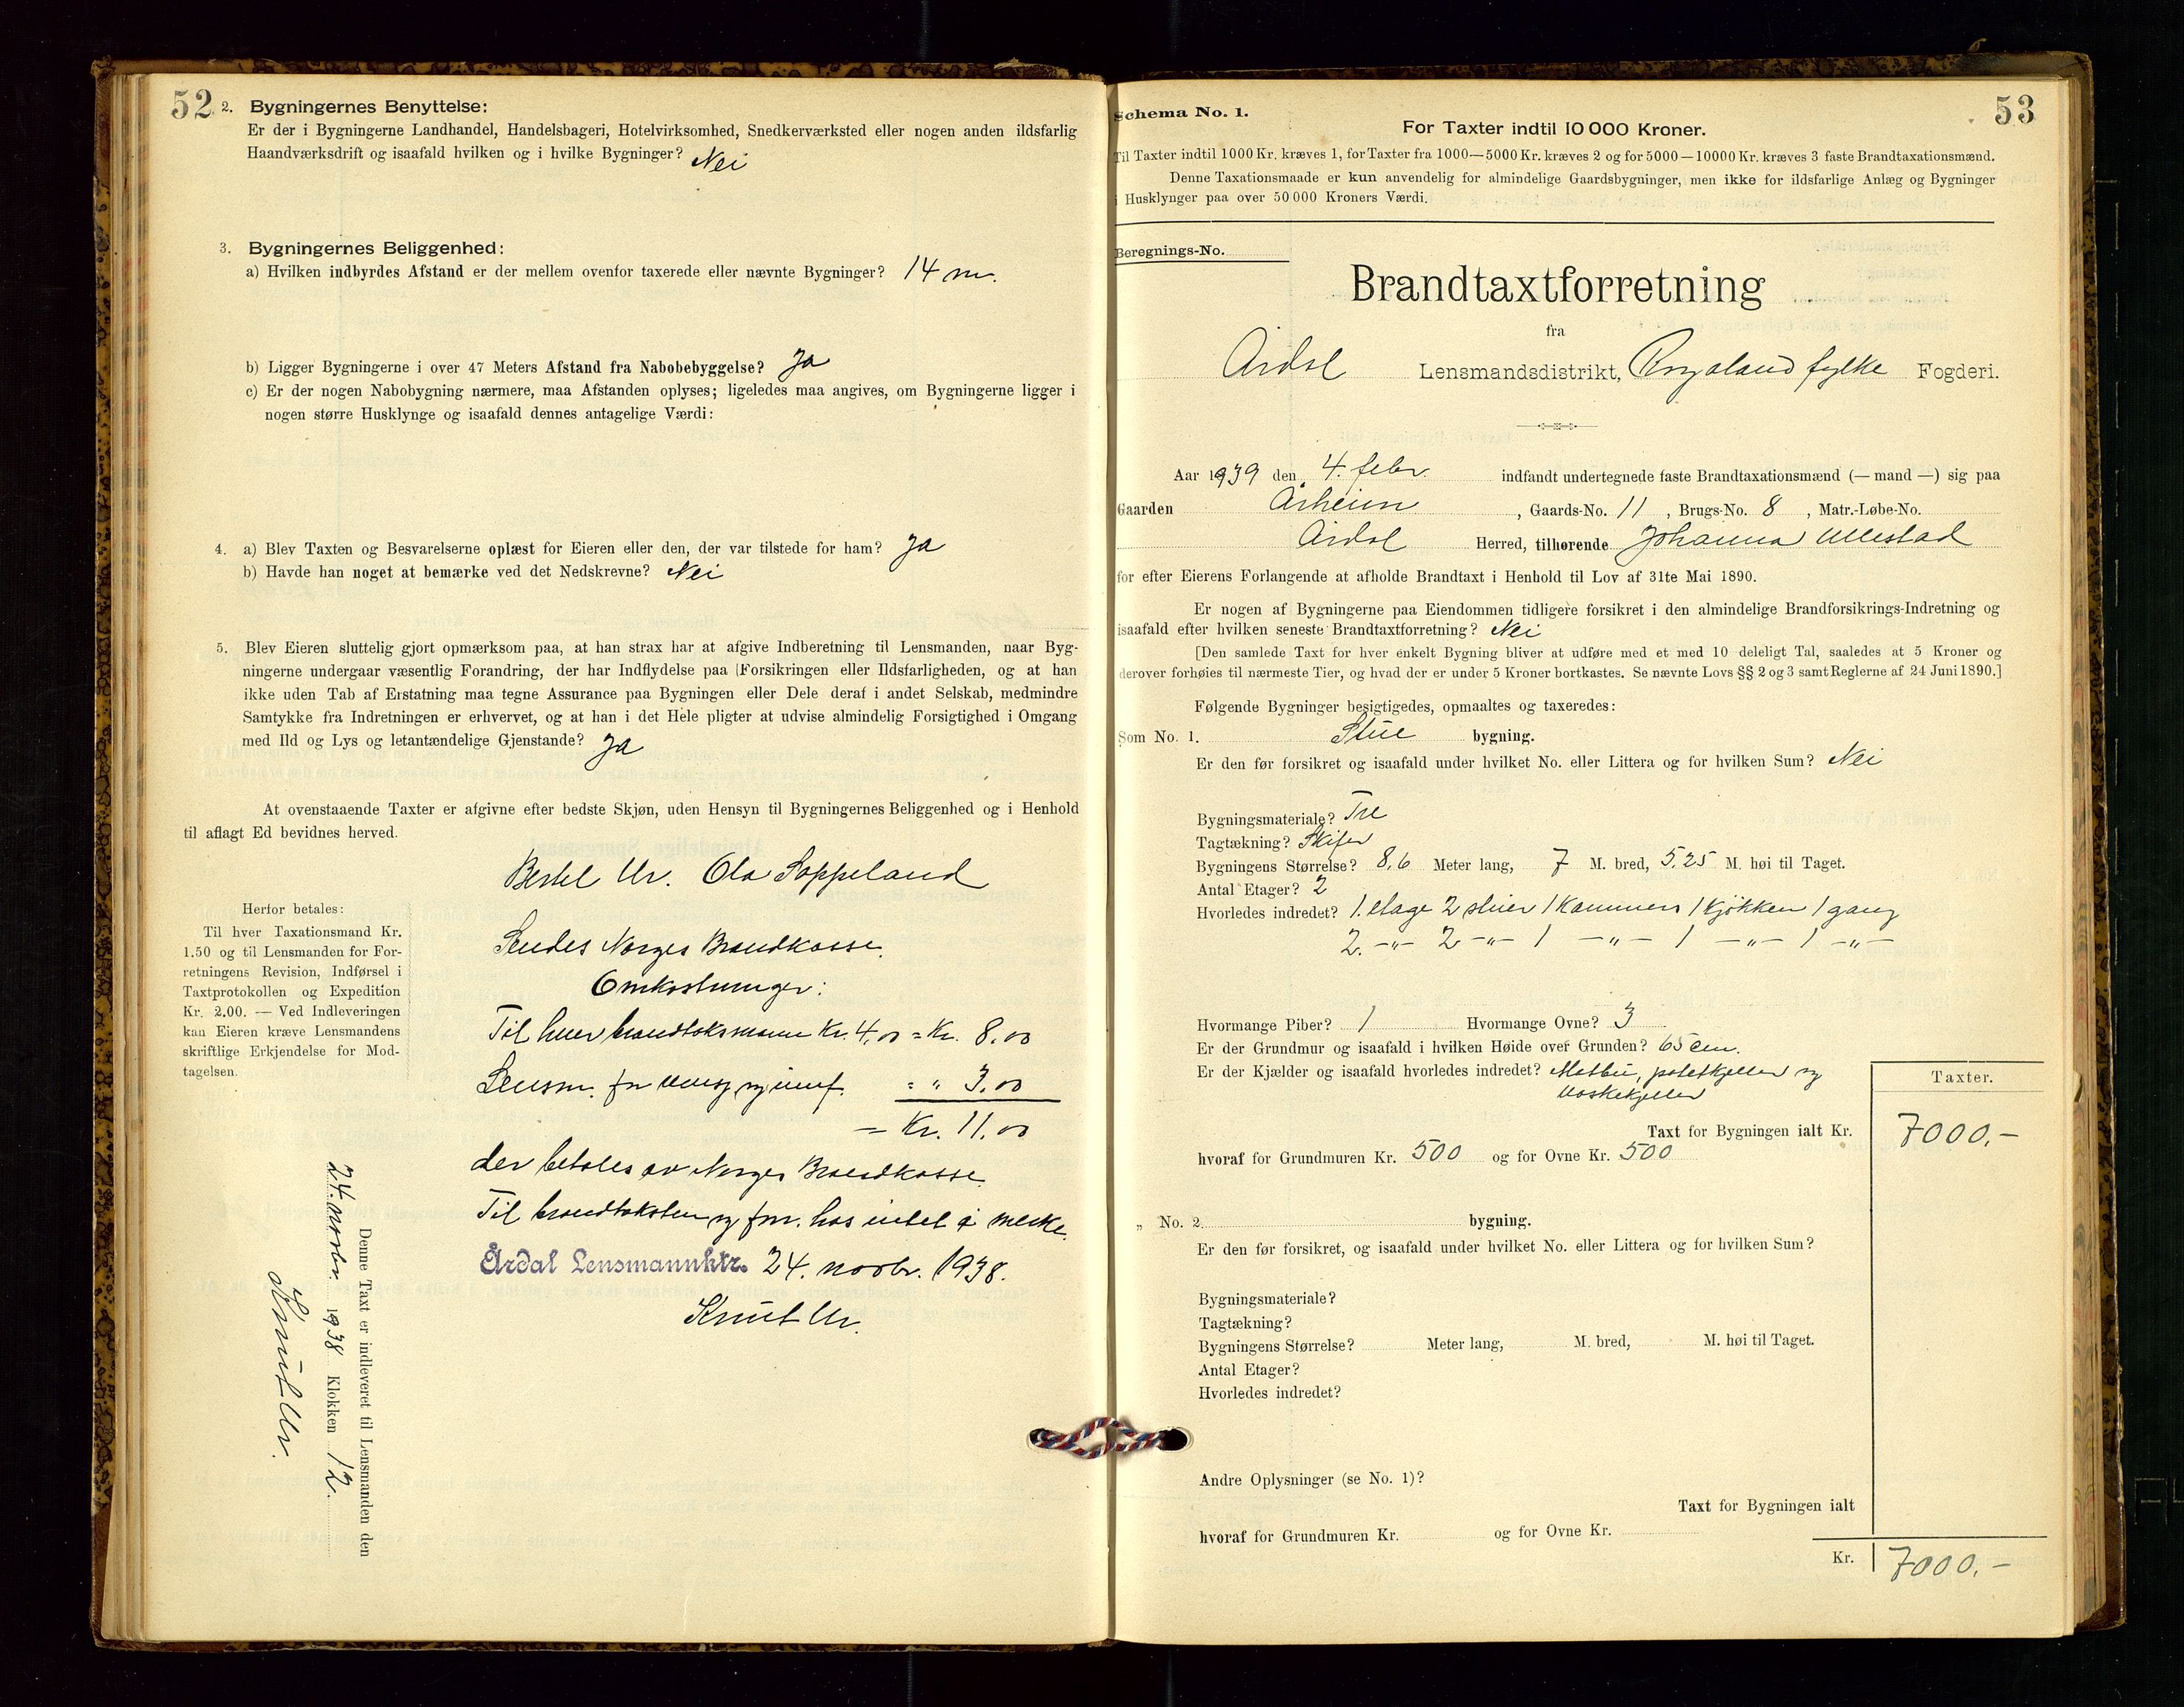 52
2. Bygningernes Benyttelse:
Er der i Bygningerne Landhandel, Handelsbageri, Hotelvirksomhed, Snedkerværksted eller nogen anden ildsfarlig
Haandværksdrift og isaafald hvilken og i hvilke Bygninger? Nei
3. Bygningernes Beliggenhed:
a) Hvilken indbyrdes Afstand er der mellem ovenfor taxerede eller nævnte Bygninger? 14 m.
b) Ligger Bygningerne i over 47 Meters Afstand fra Nabobebyggelse? Ja
c) Er der nogen Nabobygning nærmere, maa Afstanden oplyses; ligeledes maa angives, om Bygningerne ligger i
nogen større Husklynge og isaafald dennes antagelige Værdi:
4. a) Blev Taxten og Besvarelserne oplæst for Eieren eller den, der var tilstede for ham? Ja
b) Havde han noget at bemærke ved det Nedskrevne? Nei
5. Blev Eieren sluttelig gjort opmærksom paa, at han strax har at afgive Indberetning til Lensmanden, naar Byg-
ningerne undergaar væsentlig Forandring, der har Indflydelse paa Forsikringen eller Ildsfarligheden, og at han
ikke uden Tab af Erstatning maa tegne Assurance paa Bygningen eller Dele deraf i andet Selskab, medmindre
Samtykke fra Indretningen er erhvervet, og at han i det Hele pligter at udvise almindelig Forsigtighed i Omgang
med Ild og Lys og letantændelige Gjenstande? Ja
At ovenstaaende Taxter er afgivne efter bedste Skjøn, uden Hensyn til Bygningernes Beliggenhed og i Henhold
til aflagt Ed bevidnes herved.
Bertel Ur. Ola Soppeland
Herfor betales:
Til hver Taxationsmand Kr.
1.50 og til Lensmanden for For-
retningens Revision, Indførsel i
Taxtprotokollen og Expedition
Kr. 2.00. — Ved Indleveringen
kan Eieren kræve Lensmandens
skriftlige Erkjendelse for Mod-
tagelsen.
Sendes Norges Brandkasse.
Omkostninger:
Til hver brandtaksmann Kr. 4,00 = Kr. 8.00
Lensm. for utsg og innf. = " 3.00
= Kr. 11.00
der betales av Norges Brandkasse.
Til brandtaksten og forr. has intet å merke.
Årdal Lensmannktr. 24. novbr. 1938.
Knut Ur.
Denne Taxt er indleveret til Lensmanden den
24. novbr. 1938 Klokken 12.
Knut Ur.
Schema No. 1.
53
For Taxter indtil 10 000 Kroner.
Til Taxter indtil 1000 Kr. kræves 1, for Taxter fra 1000—5000 Kr. kræves 2 og for 5000—10000 Kr. kræves 3 faste Brandtaxationsmænd.
Denne Taxationsmaade er kun anvendelig for almindelige Gaardsbygninger, men ikke for ildsfarlige Anlæg og Bygninger
i Husklynger paa over 50 000 Kroners Værdi.
Beregnings-No.
Brandtaxtforretning
fra
Årdal Lensmandsdistrikt, Rogaland fylke Fogderi.
Aar 1939 den 4. febr. indfandt undertegnede faste Brandtaxationsmænd (— mand —) sig paa
Gaarden Årheim, Gaards-No. 11, Brugs-No. 8, Matr.-Løbe-No.
Årdal Herred, tilhørende Johanna Ullestad
for efter Eierens Forlangende at afholde Brandtaxt i Henhold til Lov af 31te Mai 1890.
Er nogen af Bygningerne paa Eiendommen tidligere forsikret i den almindelige Brandforsikrings-Indretning og
isaafald efter hvilken seneste Brandtaxtforretning? Nei
[Den samlede Taxt for hver enkelt Bygning bliver at udføre med et med 10 deleligt Tal, saaledes at 5 Kroner og
derover forhøies til nærmeste Tier, og hvad der er under 5 Kroner bortkastes. Se nævnte Lovs §§ 2 og 3 samt Reglerne af 24 Juni 1890.]
Følgende Bygninger besigtigedes, opmaaltes og taxeredes:
Som No. 1. Stue bygning.
Er den før forsikret og isaafald under hvilket No. eller Littera og for hvilken Sum? Nei
Bygningsmateriale? Tre
Tagtækning? Skifer
Bygningens Størrelse? 8,6 Meter lang, 7 M. bred, 5.25 M. høi til Taget.
Antal Etager? 2
Hvorledes indredet? 1. etage 2 stuer 1 kammers 1 kjøkken 1 gang
2. -"- 2 -"- 1 -"- 1 -"- 1 -"-
Hvormange Piber? 1 Hvormange Ovne? 3
Er der Grundmur og isaafald i hvilken Høide over Grunden? 65 cm.
Er der Kjælder og isaafald hvorledes indredet? Matbu, potetkjeller og
vaskekjeller
Taxter.
Taxt for Bygningen ialt Kr. 7000,-
hvoraf for Grundmuren Kr. 500 og for Ovne Kr. 500
" No. 2. bygning.
Er den før forsikret, og isaafald under hvilket No. eller Littera og for hvilken Sum?
Bygningsmateriale?
Tagtækning?
Bygningens Størrelse? Meter lang, M. bred, M. høi til Taget.
Antal Etager?
Hvorledes indredet?
Andre Oplysninger (se No. 1)?
Taxt for Bygningen ialt
hvoraf for Grundmuren Kr. og for Ovne Kr.
Kr. 7000,-